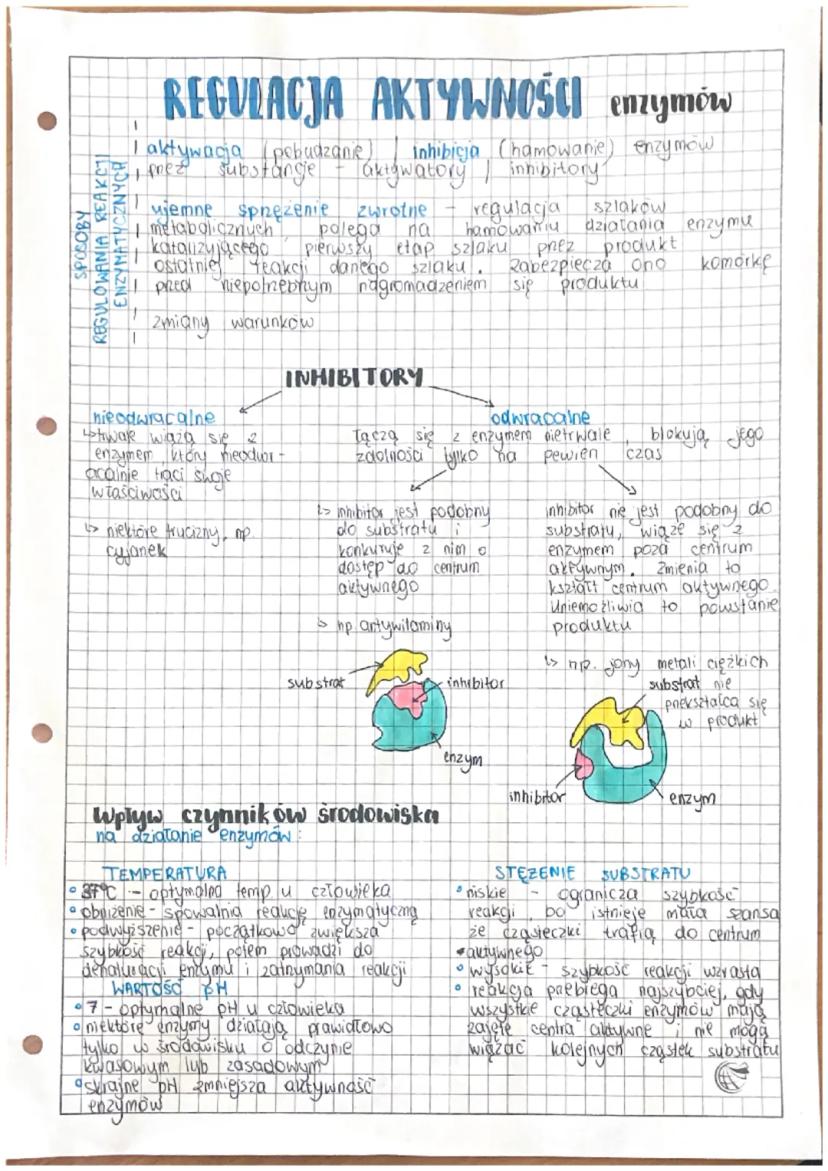 REGULACJA AKTYWNOŚCI enzymów
SPOSOBY
REGULOWANIA REAKCJI
ENZYMATYCZNYCH
aktywacja (pobudzanie) / inhibicja (hamowanie) enzymów
przez substancje - aktywatory / inhibitory
ujemne sprzężenie zwrotne - regulacja szlaków
metabolicznych, polega na hamowaniu działania enzymu
katalizującego pierwszy etap szlaku przez produkt
ostatniej reakcji danego szlaku. Zabezpiecza ono komórkę
przed niepotrzebnym nagromadzeniem się produktu
zmiany warunków
INHIBITORY
nieodwracalne
↳ trwale wiążą się z
enzymem, który nieodwr-
acalnie traci swoje
właściwości
↳ niektóre trucizny, np.
cyjanek
odwracalne
łączą się z enzymem nietrwale, blokują jego
zdolności tylko na pewien czas
↳ inhibitor jest podobny
do substratu i
konkuruje z nim o
dostęp do centrum
aktywnego
↳ np. antywitaminy
substrat
inhibitor
enzym
inhibitor nie jest podobny do
substratu, wiąże się z
enzymem poza centrum
aktywnym. Zmienia to
kształt centrum aktywnego.
Uniemożliwia to powstanie
produktu
↳ np. jony metali ciężkich
substrat nie
przekształca się
w produkt
inhibitor
enzym
Wpływ czynników środowiska
na działanie enzymów:
TEMPERATURA
• 37°C - optymalna temp u człowieka
• obniżenie - spowalnia reakcję enzymatyczną
• podwyższenie - początkowo zwiększa
szybkość reakcji, potem prowadzi do
denaturacji enzymu i zatrzymania reakcji
WARTOŚĆ pH
• 7 - optymalne pH u człowieka
• niektóre enzymy działają prawidłowo
tylko w środowisku o odczynie
kwasowym lub zasadowym
• skrajne pH zmniejsza aktywność
enzymów
STĘŻENIE SUBSTRATU
• niskie - ogranicza szybkość
reakcji, bo istnieje mała szansa
że cząsteczki trafią do centrum
aktywnego
• wysokie - szybkość reakcji wzrasta
• reakcja przebiega najszybciej, gdy
wszystkie cząsteczki enzymów mają
zajęte centra aktywne i nie mogą
wiązać kolejnych cząstek substratu